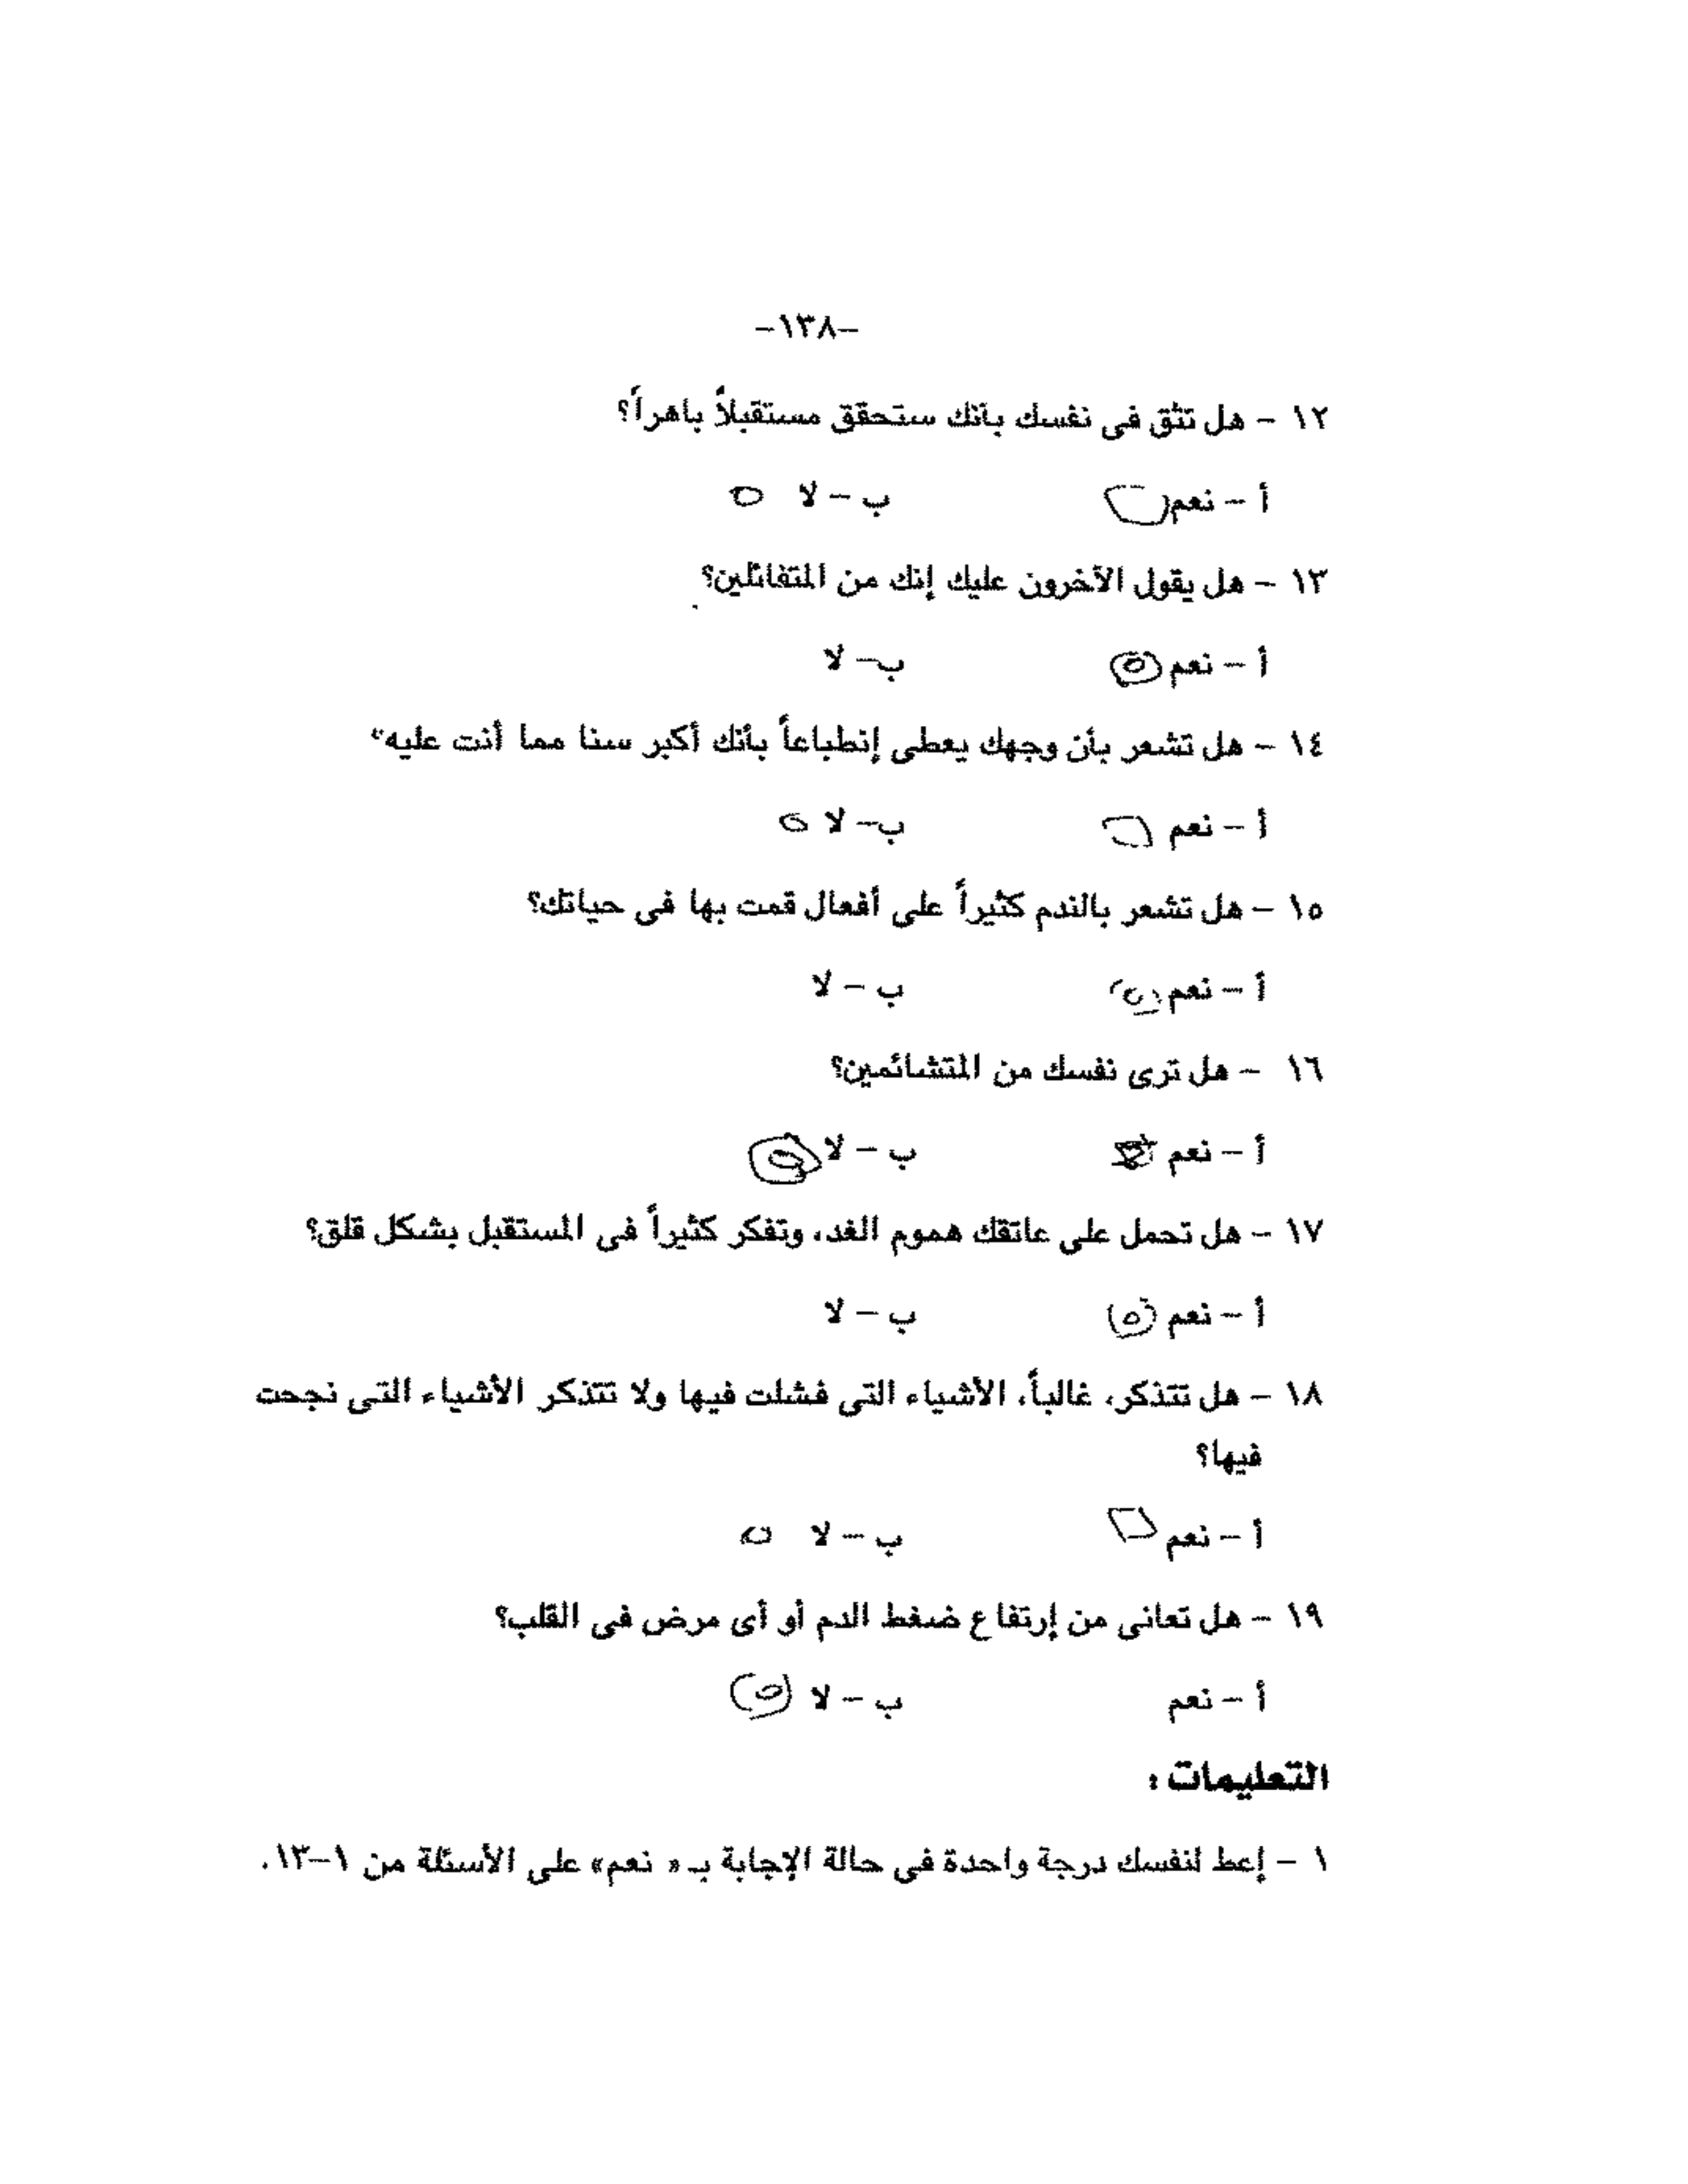 -١٣٨-
١٢ - هل تثق فى نفسك بأنك ستحقق مستقبلاً باهراً؟
أ - نعم ب - لا
١٣ - هل يقول الآخرون عليك إنك من المتفائلين؟
أ - نعم ب- لا
١٤ - هل تشعر بأن وجهك يعطى إنطباعاً بأنك أكبر سنا مما أنت عليه؟
أ - نعم ب- لا
١٥ - هل تشعر بالندم كثيراً على أفعال قمت بها فى حياتك؟
أ - نعم ب - لا
١٦ - هل ترى نفسك من المتشائمين؟
أ - نعم ب - لا
١٧ - هل تحمل على عاتقك هموم الغد، وتفكر كثيراً فى المستقبل بشكل قلق؟
أ - نعم ب - لا
١٨ - هل تتذكر، غالباً، الأشياء التى فشلت فيها ولا تتذكر الأشياء التى نجحت
فيها؟
أ - نعم ب - لا
١٩ - هل تعانى من إرتفاع ضغط الدم أو أى مرض فى القلب؟
أ - نعم ب - لا
التعليمات :
١ - إعط لنفسك درجة واحدة فى حالة الإجابة بـ « نعم» على الأسئلة من ١-١٣.